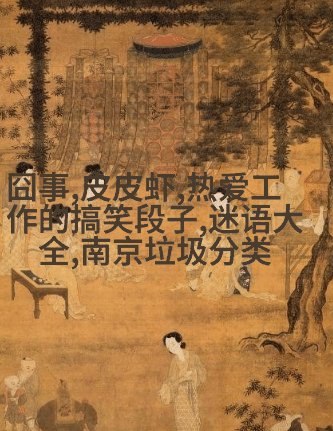 囧事,皮皮虾,热爱工
作的搞笑段子,迷语大
全,南京垃圾分类